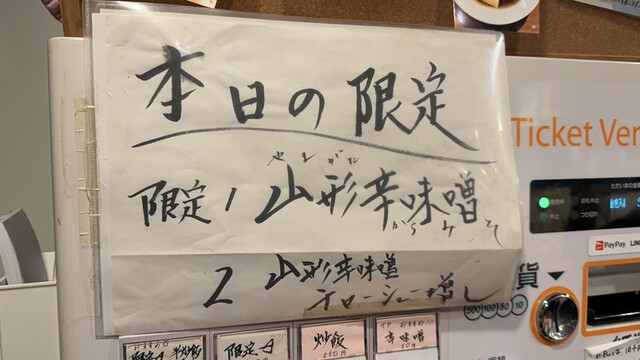 本日の限定
やまがた
限定1 山形辛味噌
からみそ
2 山形辛味噌
チャーシュー増し
Ticket Ver
PayPay LINE
貨▼
500 100 50 10
限定
炒飯
辛味噌